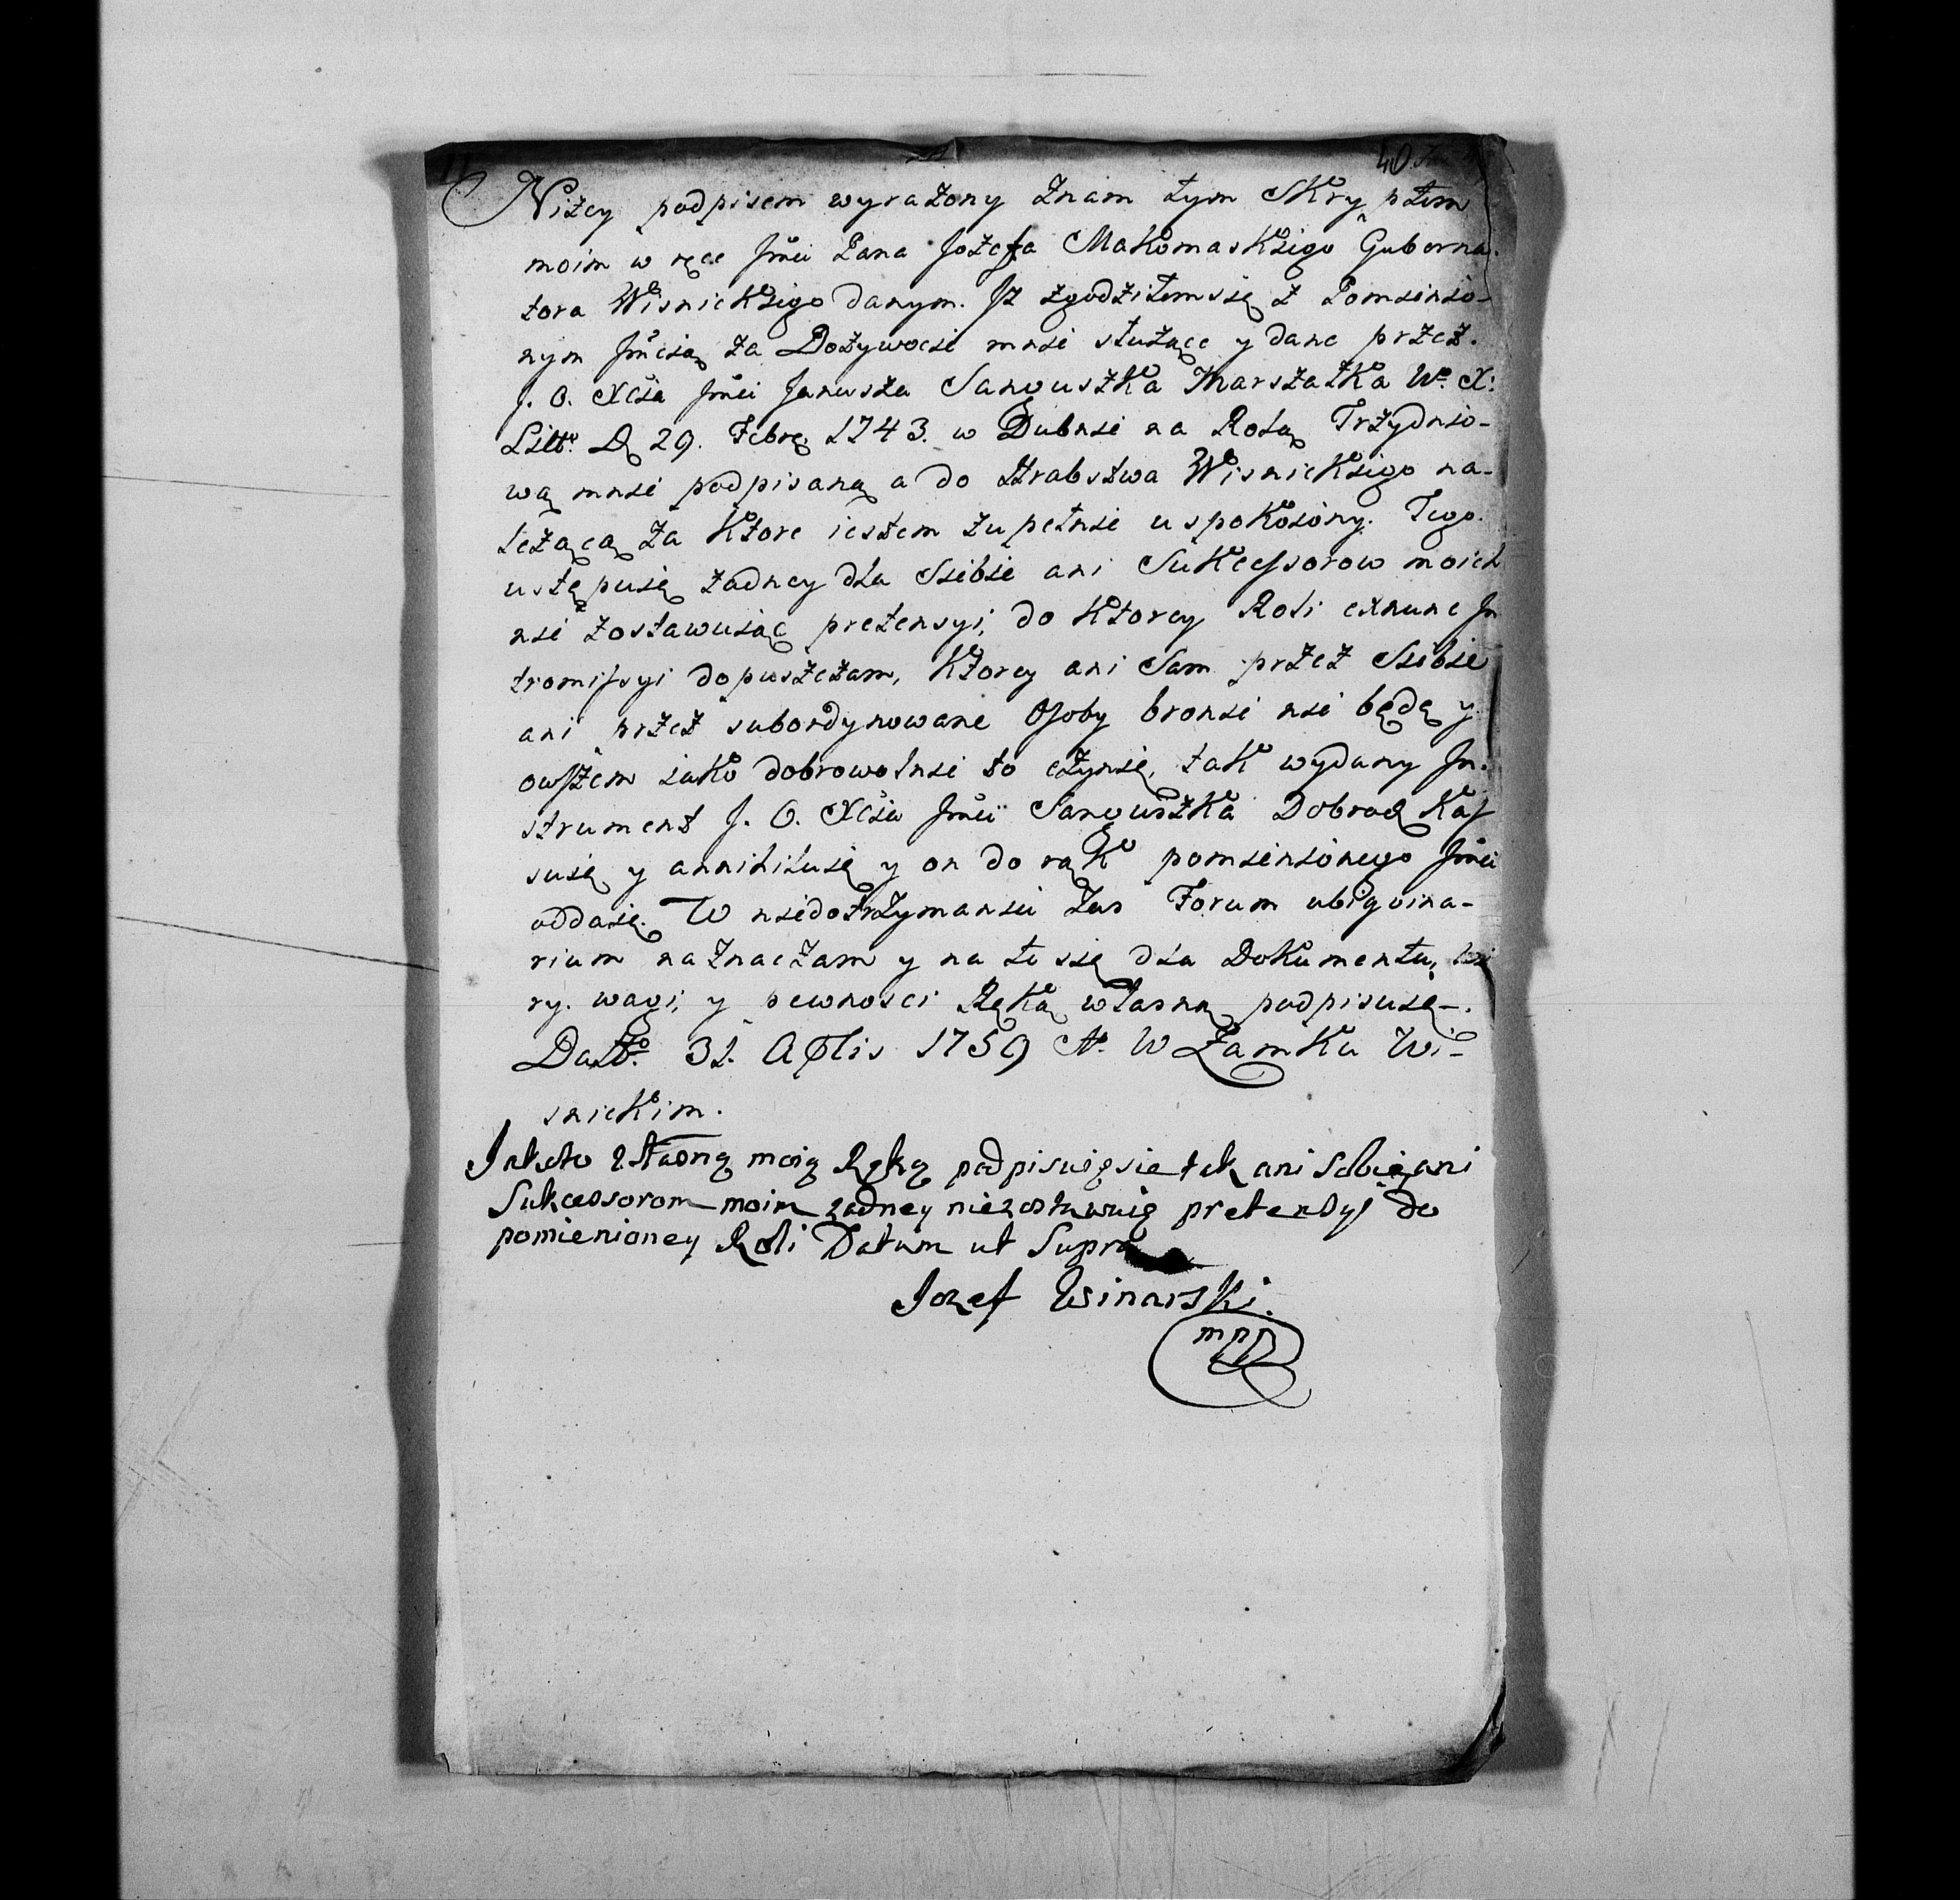 11
40
Niżey podpisem wyrażony znam tym Skryptem
moim w ręce Jmci Pana Jozefa Makomaskiego Guberna-
tora Wisnickiego danym. Jż zgodziłem się z Pomienio-
nym Jmcią za Dożywocie mnie służące y dane przez.
J. O. Xcia Jmci Janusza Sanguszka Marszałka W. X:
Litt: D 29. Febr: 1743. w Dubnie na Rolą Trzydnio-
wą mnie podpisaną a do Hrabstwa Wisnickiego na-
leżącą za ktore iestem zupełnie uspokoiony. Tego
ustępuię żadney dla Siebie ani Sukcessorow moich
nie zostawuiąc pretensyi, do ktorey Roli exnunc In
tromissyi dopuszczam, ktorey ani Sam przez Siebie
ani przez subordynowane Osoby bronic nie będę y
owszem iako dobrowolnie to czynię, tak wydany In-
strument J. O. Xcia Jmci Sanguszka Dobrod Kas
suię y annihiluię y on do rąk pomienionego Jmci
oddaię. W niedotrzymaniu zas Forum ubiquina-
rium naznaczam y na to się dla Dokumentu, wi
ry. wagi, y pewnosci Ręką własną podpisuię.
Datt: 31. Aplis 1759 A. W Zamku Wi-
snickim.
Jakoto własną moią Ręką podpisuię sie tak ani Sobie ani
Sukcessorom moim zadney niezostawuię pretensyi do
pomienioney Roli Datum ut Supra
Jozef Winarski.
mpp